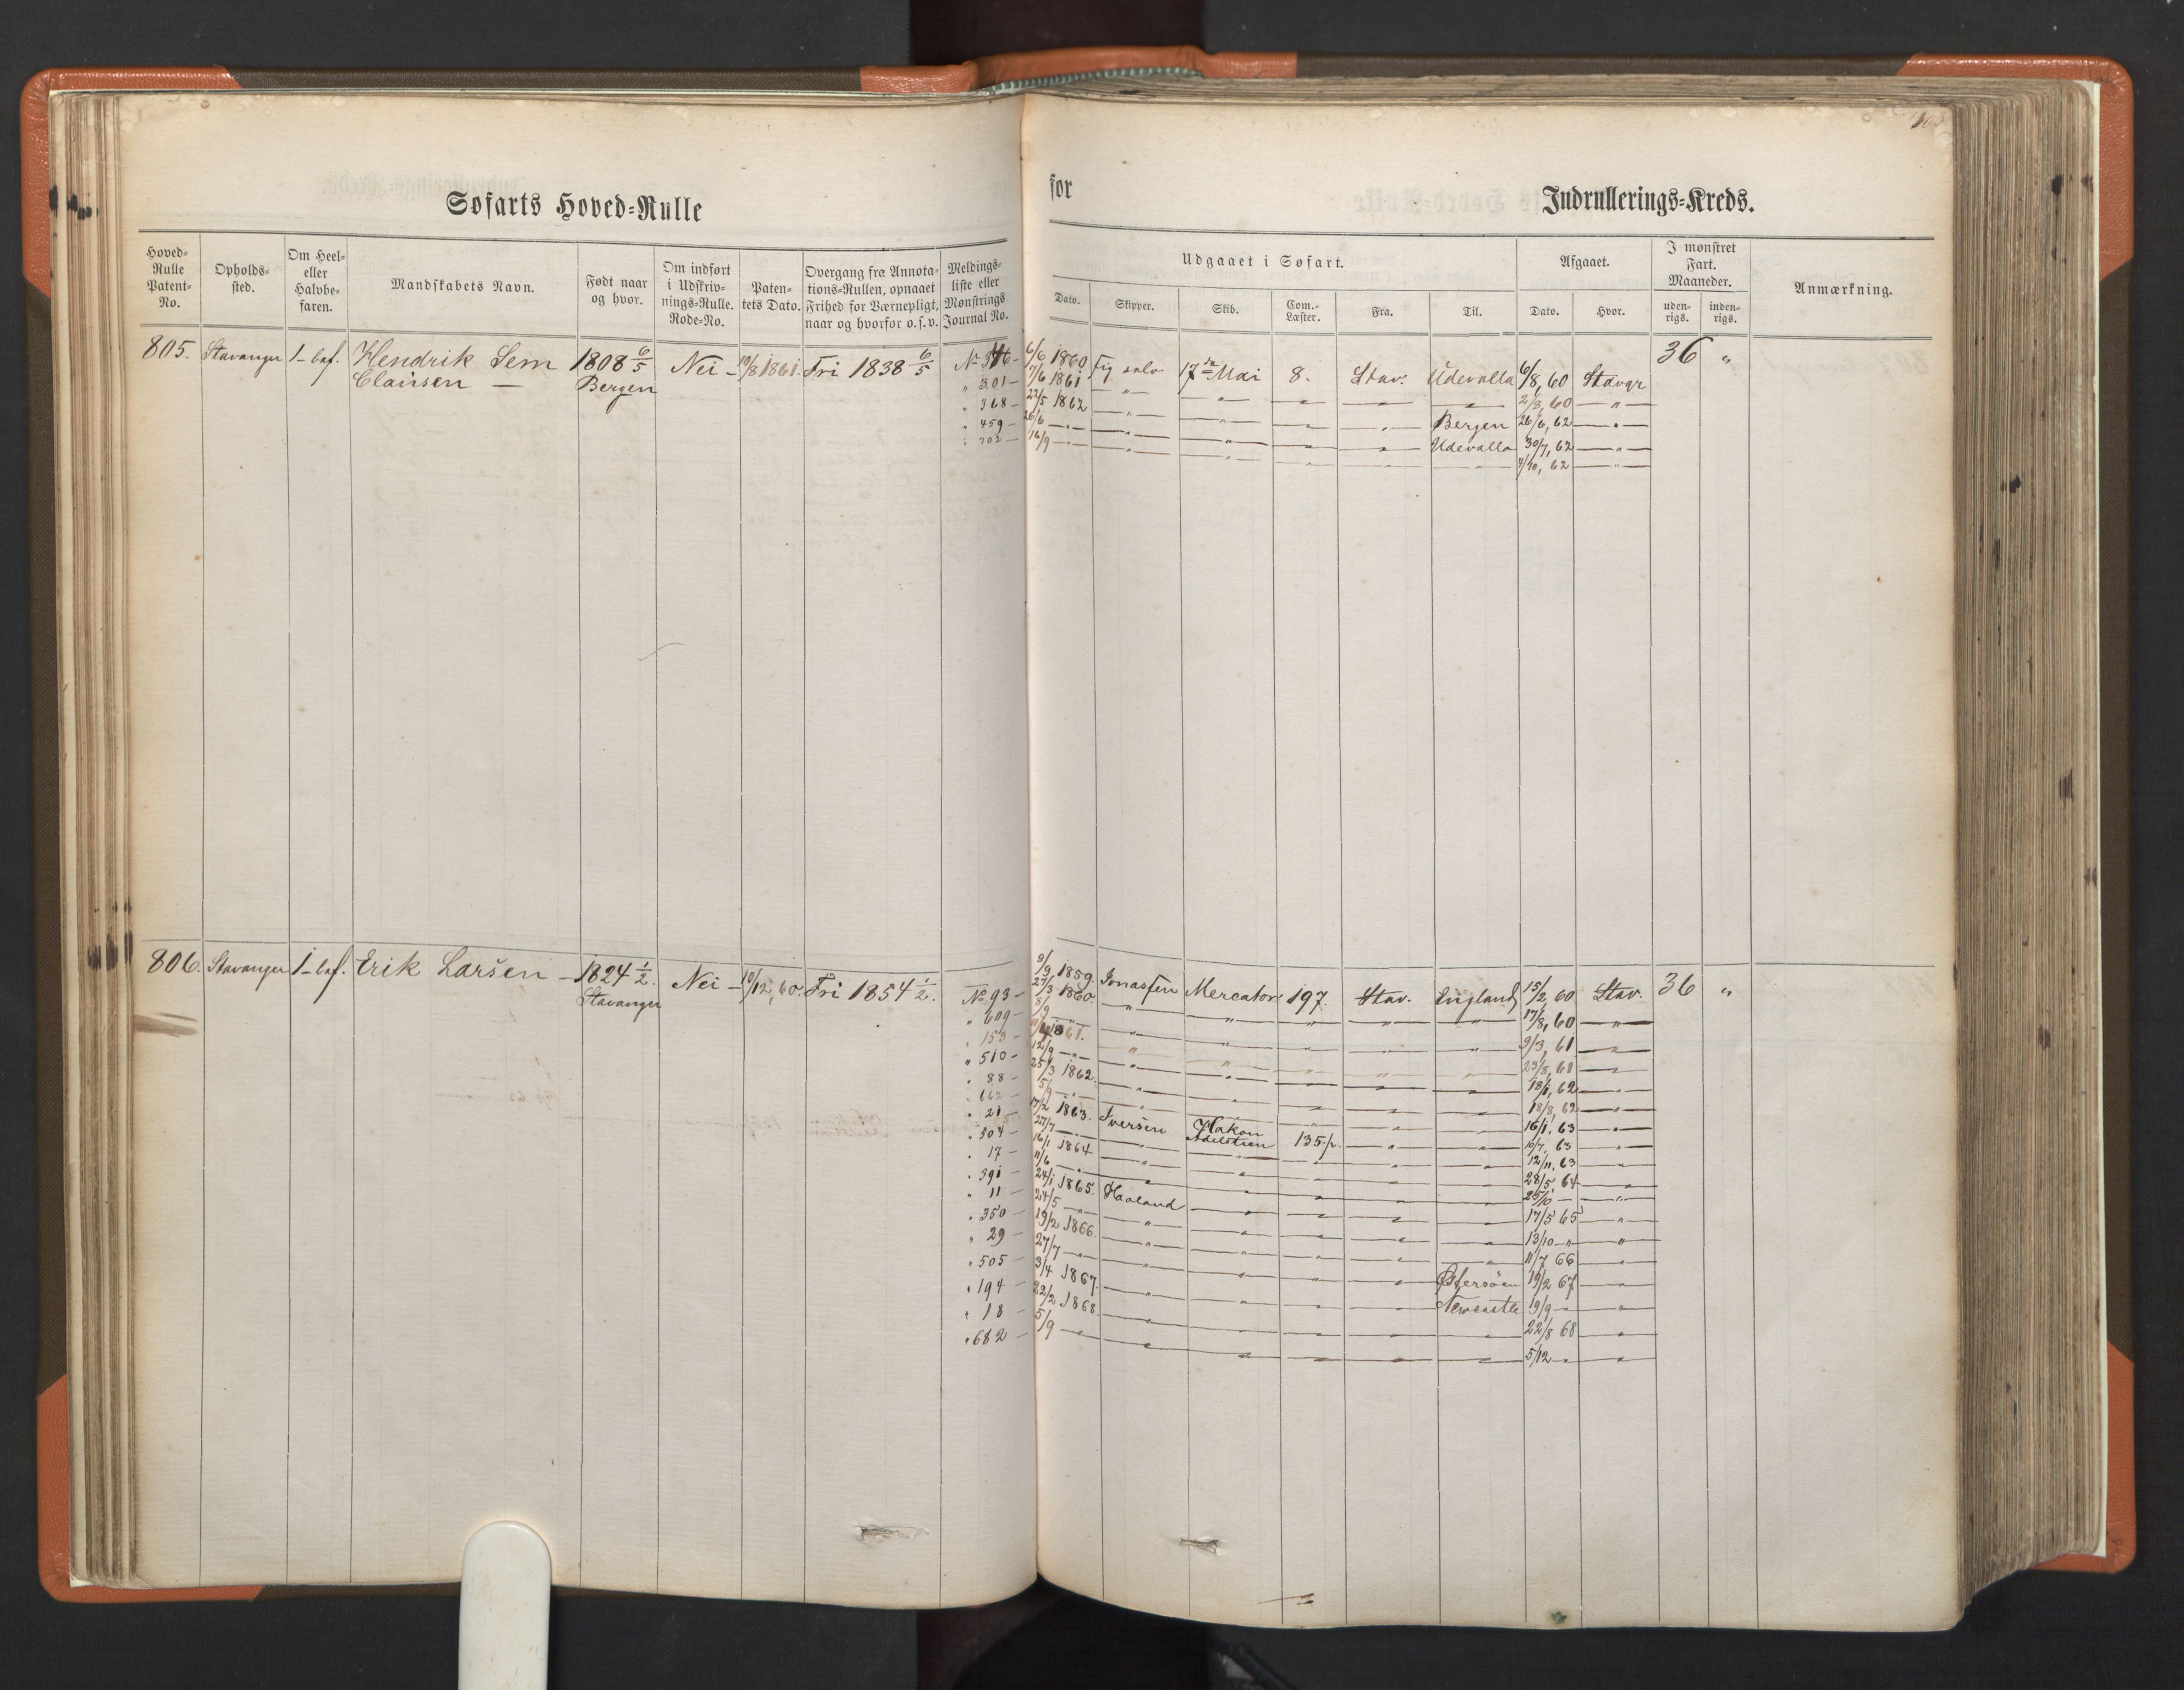 103
Søfarts Hoved-Rulle
for
Indrullerings-Kreds.
Hoved-Rulle Patent-No.
Opholds-sted.
Om Heel- eller Halvbe-faren.
Mandskabets Navn.
Født naar og hvor.
Om indført i Udskriv-nings-Rulle. Rode-No.
Paten-tets Dato.
Overgang fra Annota-tions-Rullen, opnaaet Frihed for Værnepligt, naar og hvorfor o.s.v.
Meldings-liste eller Mønstrings Journal No.
Udgaaet i Søfart.
Dato.
Skipper.
Skib.
Com.-Læster.
Fra.
Til.
Afgaaet.
Dato.
Hvor.
I mønstret Fart. Maaneder.
uden-rigs.
inden-rigs.
Anmærkning.
805. Stavanger 1- bef. Hendrik Sem 1808 6/5 Nei - 10/8 1861. Fri 1838 6/5
Clausen — Bergen
6/6 1860 Fig selv 17de Mai 8. Stav. Udevalla 6/8, 60 Stavgr 36 "
" 301 - 7/6 1861 " 2/8, 60 — " —
" 368 - 22/5 1862 " Bergen 26/6, 62 — " —
" 459 - 26/6 — " — Udevalla 30/7, 62 — " —
" 702 - 16/9 — " — 4/10, 62 — " —
806. Stavanger 1- bef. Erik Larsen - 1824 1/2. Nei - 10/12, 60. Fri 1854 1/2.
Stavanger
No 93 - 9/9 1859 Jonassen Mercator 197. Stav. England 15/2, 60 Stav. 36 "
" 609 - 27/3 1860 " 17/8, 60 — " —
" 153 - 8/9 — " — 9/3, 61
" 510 - 1861. 23/8, 61
" 88 - 12/9 — " — 18/1, 62
" 662 - 25/3 1862. 18/8, 62
" 21 - 5/9 — " — 16/1, 63
" 304 - 17/2 1863. Iversen Hakon Adelsteen 135 p. 10/7, 63
" 17 - 27/7 — " — 12/11, 63
" 391 - 16/1 1864 28/5, 64
" 11 - 11/6 — " — 25/10 —
" 350 - 24/1 1865. Haaland 17/5 65
" 29 - 24/5 — " — 13/10 — "
" 505 - 19/2 1866. 11/7 66
" 194 - 27/7 — " — Østersøen 19/2 67
" 18 - 3/4 1867. Newcastle 19/9 —
" 682 - 22/2 1868. 22/8 68
5/9 — " — 5/12 — "